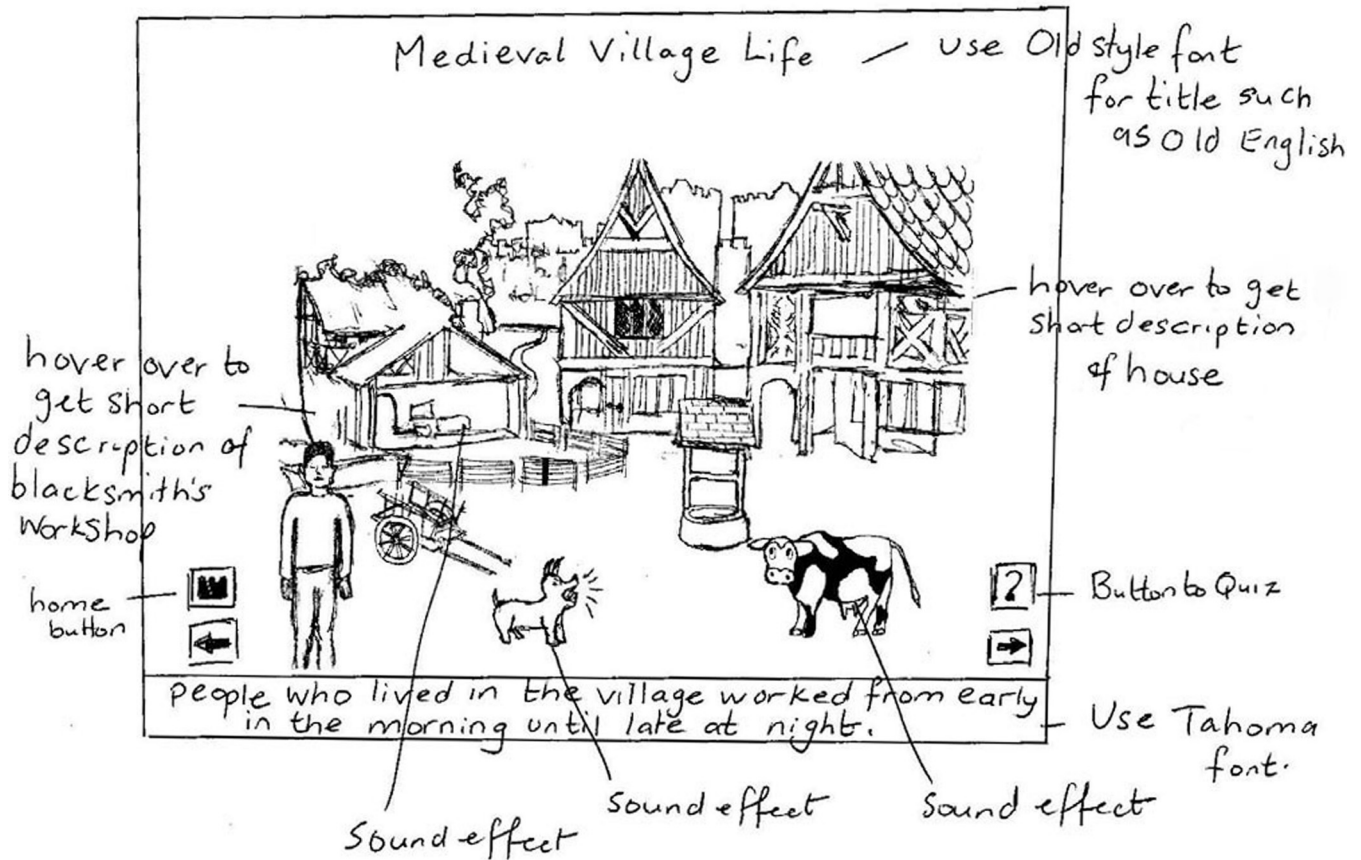 Medieval Village Life
use Old style font
for title such
as Old English
hover over to get
short description
of house
hover over to
get short
description of
blacksmith's
Workshop
home
button
?
Button to Quiz
People who lived in the village worked from early
in the morning until late at night.
Use Tahoma
font.
Sound effect
Sound effect
Sound effect